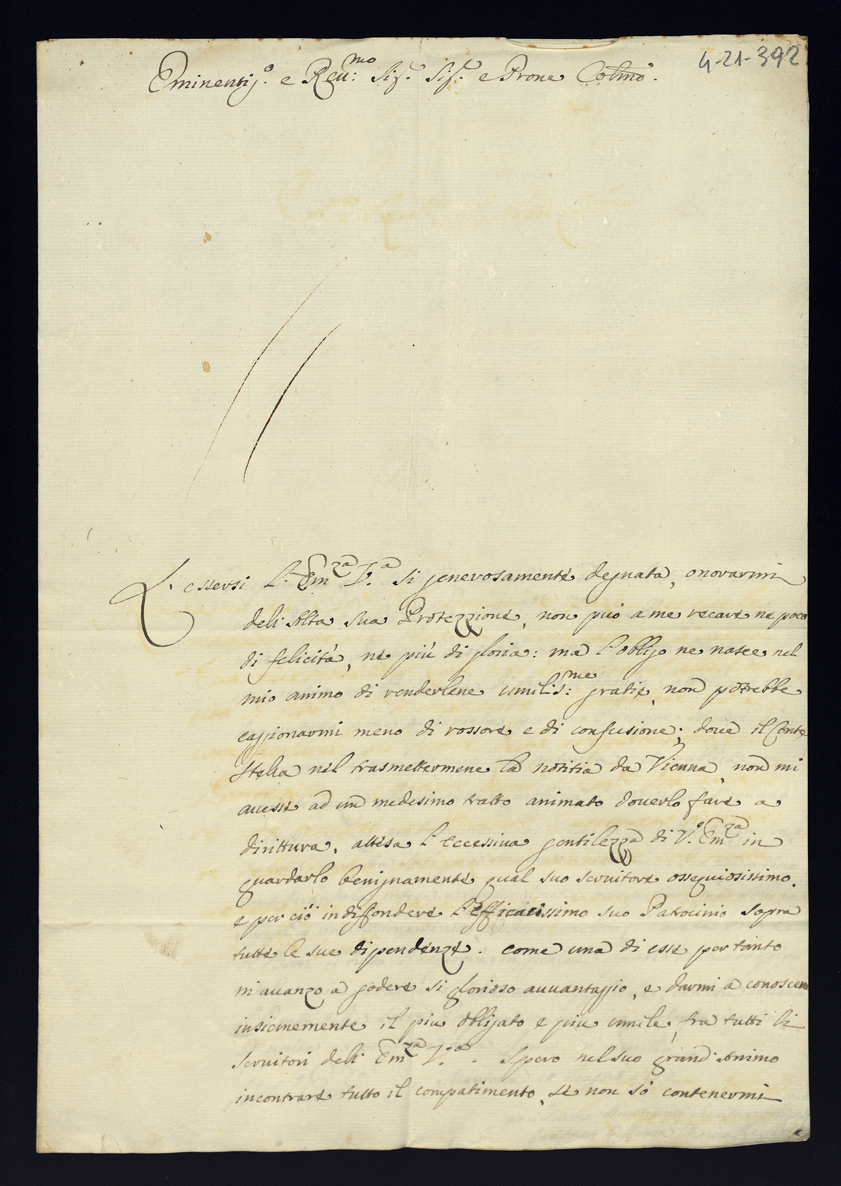 4-21-392
Eminentis.º e Reu:mo Sig.r Sig.r e Prone Colmo.
L'essersi L'Emza V.a si generosamente degnata, onorarmi
dell'Alta sua Protezzione, non può a me recare ne poco
di felicità, ne più di gloria: ma l'obligo ne nasce nel
mio animo di renderlene umilis:me gratie, non potrebbe
caggionarmi meno di rossore e di confusione; doue il Conte
Stella nel trasmettermene la notitia da Vienna, non mi
auesse ad un medesimo tratto animato douerlo fare a
dirittura, attesa l'eccessiua gentilezza di V.a Emza in
guardarlo benignamente qual suo seruitore ossequiosissimo,
e per ciò in diffondere l'efficacissimo suo Patrocinio sopra
tutte le sue dipendenze. Come una di esse per tanto
mi auanzo a godere si glorioso auuantaggio, e darmi a conoscere
insiememente il più obligato e più umile, fra tutti li
Seruitori dell'Emza V.a. Spero nel suo grand'Animo
incontrare tutto il compatimento, se non sò contenermi